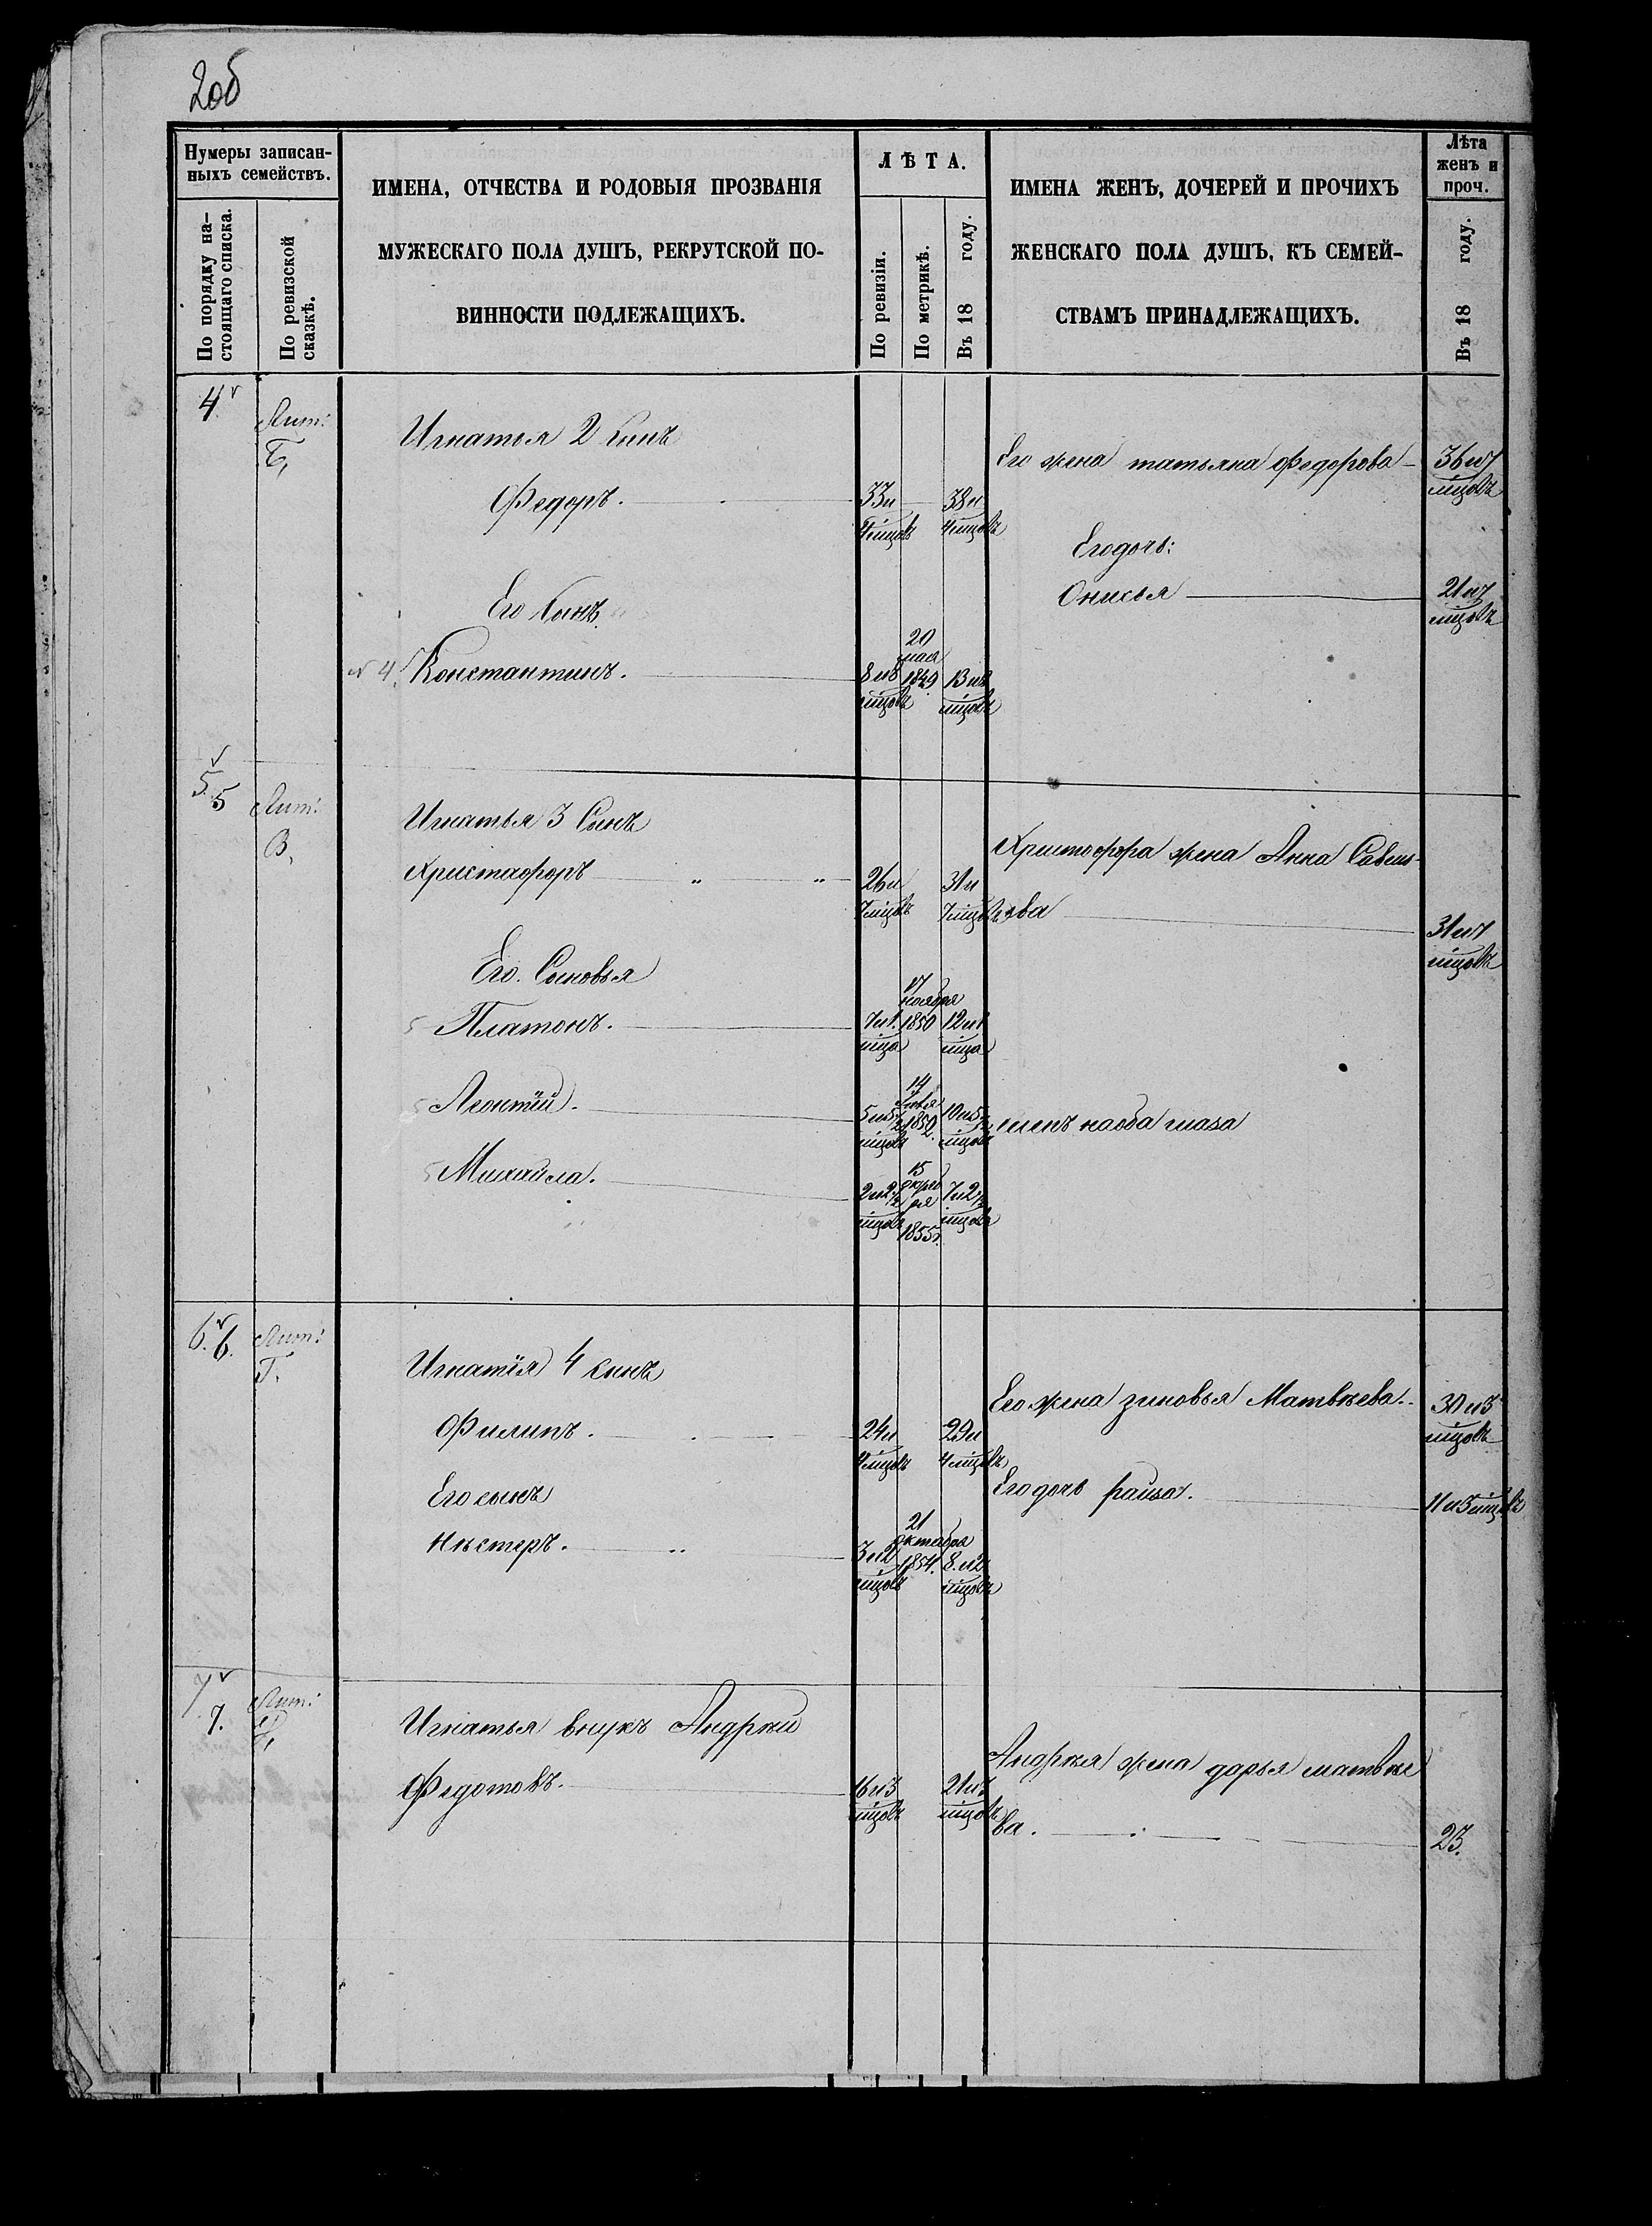 2об
Нумеры записан-
ныхъ семействъ.
По порядку на-
стоящаго списка.
По ревизской
сказкѣ.
ИМЕНА, ОТЧЕСТВА И РОДОВЫЯ ПРОЗВАНІЯ
МУЖЕСКАГО ПОЛА ДУШЪ, РЕКРУТСКОЙ ПО-
ВИННОСТИ ПОДЛЕЖАЩИХЪ.
ЛѢТА.
По ревизіи.
По метрикѣ.
Въ 18 году.
ИМЕНА ЖЕНЪ, ДОЧЕРЕЙ И ПРОЧИХЪ
ЖЕНСКАГО ПОЛА ДУШЪ, КЪ СЕМЕЙ-
СТВАМЪ ПРИНАДЛЕЖАЩИХЪ.
Лѣта
женъ и
проч.
Въ 18 году.
4
Лит:
Б,
Игнатья 2 сынъ
Федоръ.
33 и
4 мцовъ
38 и
4 мцовъ
Его жена татьяна федорова
36 и 7
мцовъ
Его дочь:
Онисья
21 и 7
мцовъ
Его Сынъ
№ 4. Константинъ.
8 и 8
мцовъ
20
мая
1849
13 и 8
мцовъ
5. 5
Лит:
В,
Игнатья 3 Сынъ
Христафоръ
26 и
7 мцовъ
31 и
7 мцовъ
Христофора жена Анна Савель-
ева
31 и 7
мцовъ
Его. Сыновья
5 Платонъ.
7 и 1.
мца
17
ноября
1850
12 и 1
мца
5 Леонтій.
5 и 5 1/2
мцовъ
14
1852.
10 и 5 1/2
мцовъ
слепъ на оба глаза
5 Михайла.
2 и 2 1/2
мцовъ
15
октяб
ря
1855.
7 и 2 1/2
мцовъ
6. 6.
Лит:
Г.
Игнатія 4 сынъ
Филипъ.
24 и
4 мцовъ
29 и
4 мцовъ
Его жена зиновья Матвѣева.
30 и 5
мцовъ
Его дочь раиса.
11 и 5 мцовъ
Его сынъ
Нѣстеръ.
3 и 2
мцовъ
21
октября
1854.
8. и 2
мцовъ
7
7.
Лит:
Д,
Игнатья внукъ Андрѣй
Федотовъ.
16 и 3
мцовъ
21 и 3
мцовъ
Андрѣя жена дарья матвѣе
ва.
23.